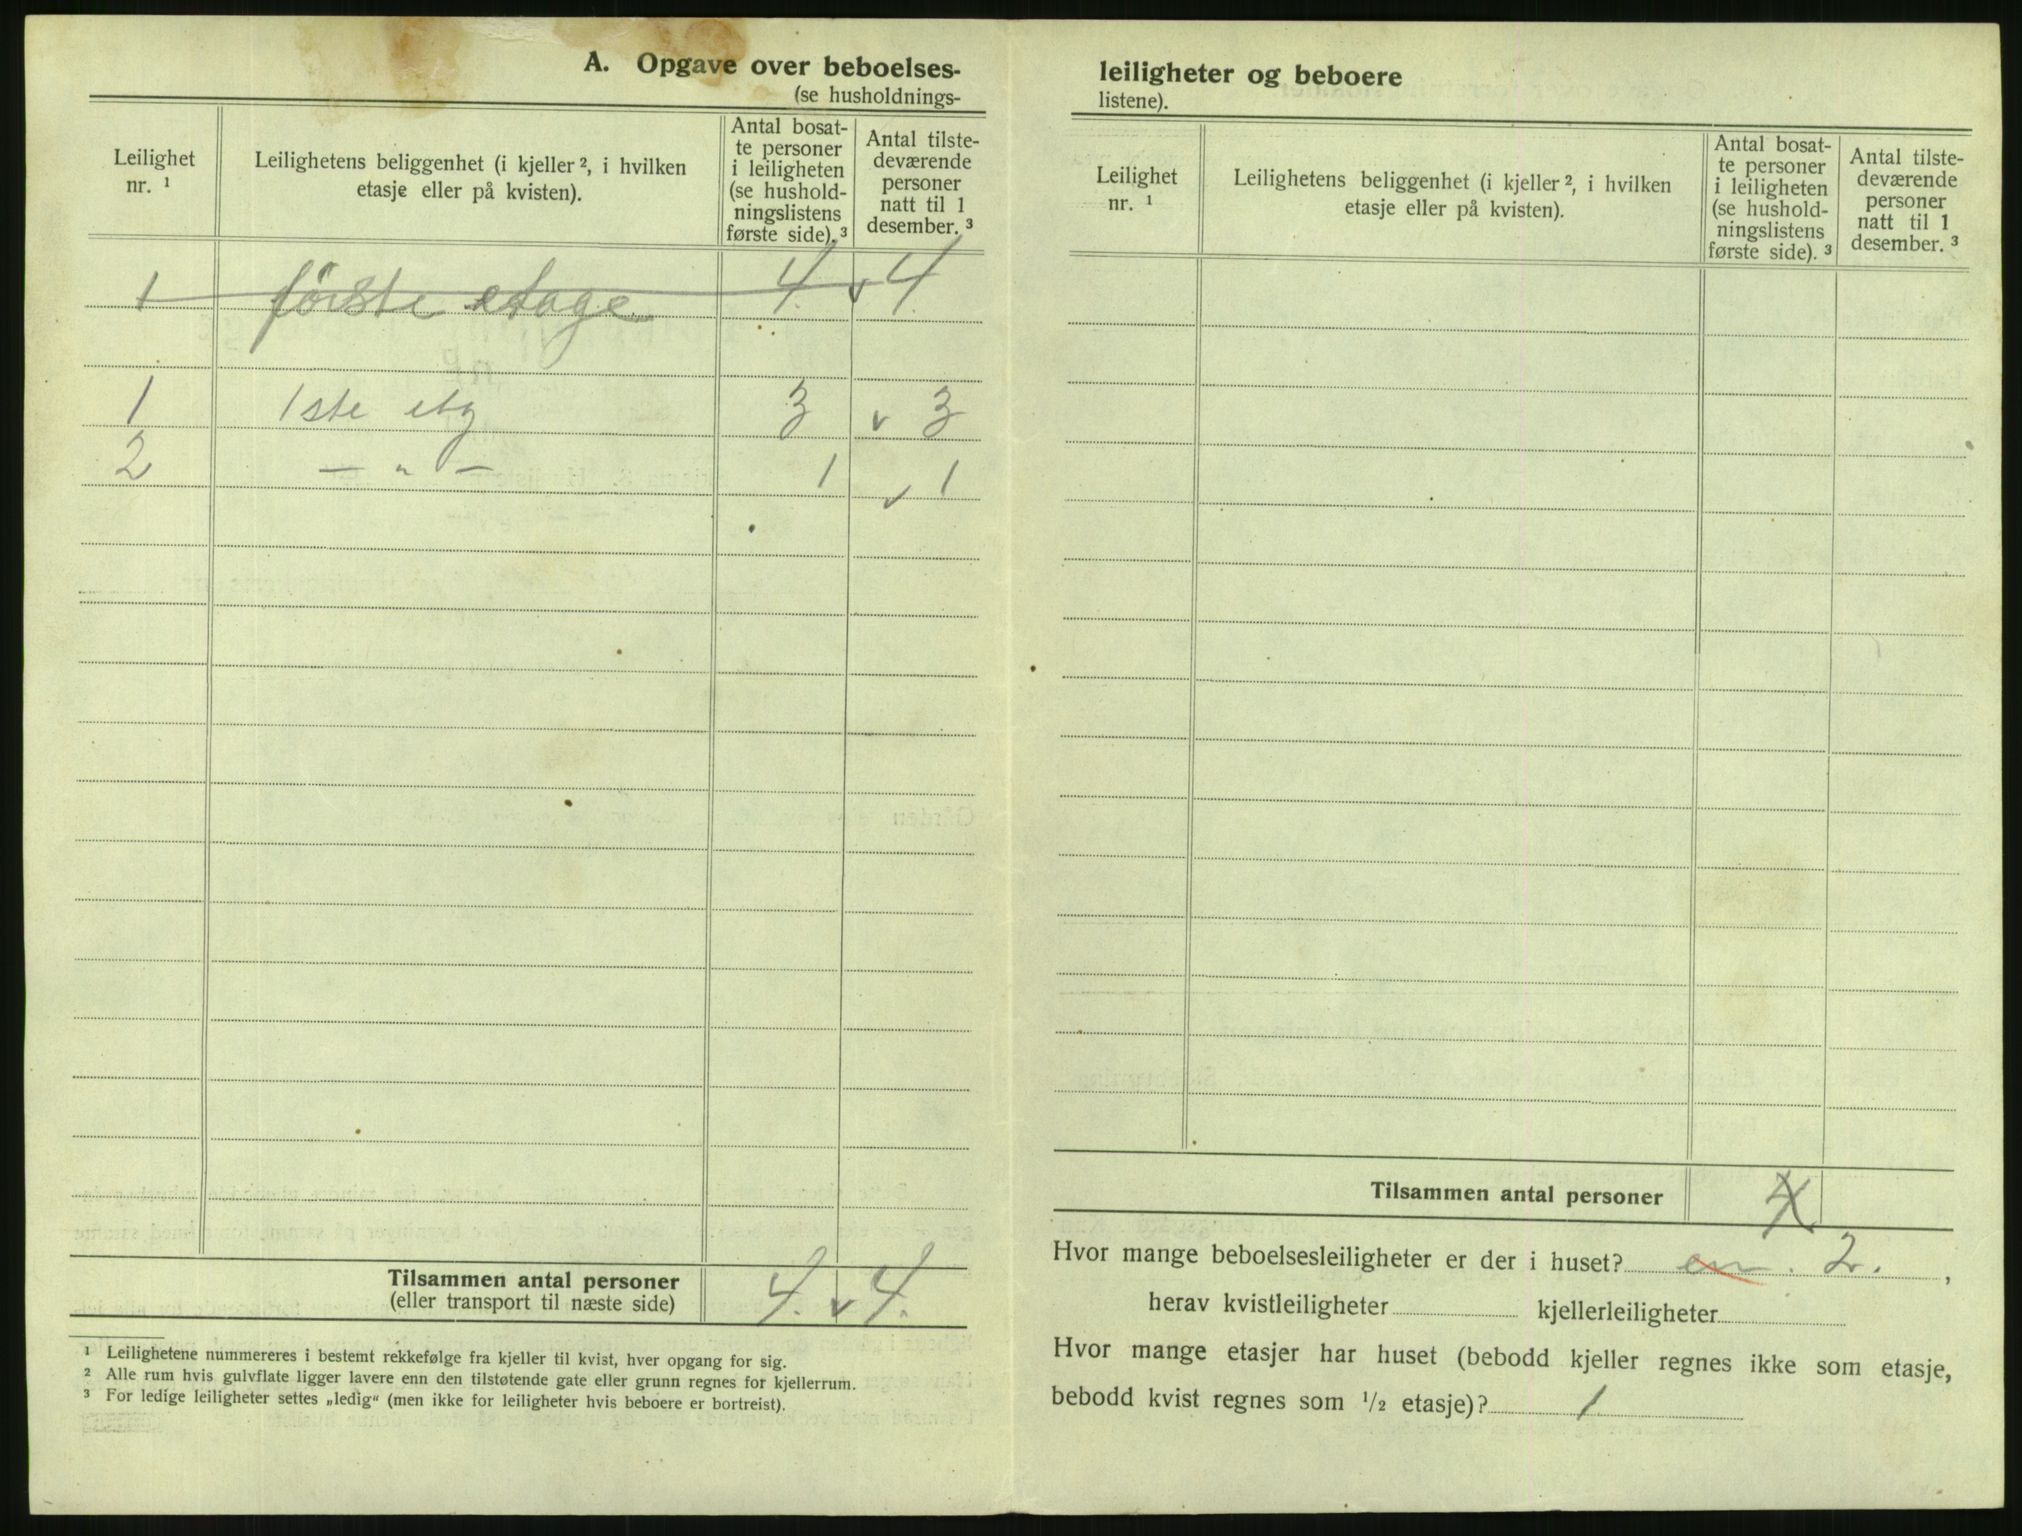 A. Opgave over beboelses-
(se husholdnings-
Leilighet nr. ¹
Leilighetens beliggenhet (i kjeller ², i hvilken
etasje eller på kvisten).
Antal bosat-
te personer
i leiligheten
(se hushold-
ningslistens
første side). ³
Antal tilste-
deværende
personer
natt til 1
desember. ³
1 første etage 4. v 4.
1 1ste etg 3 v 3
2 — „ — 1 v 1
Tilsammen antal personer 4. v 4.
(eller transport til næste side)
¹ Leilighetene nummereres i bestemt rekkefølge fra kjeller til kvist, hver opgang for sig.
² Alle rum hvis gulvflate ligger lavere enn den tilstøtende gate eller grunn regnes for kjellerrum.
³ For ledige leiligheter settes „ledig“ (men ikke for leiligheter hvis beboere er bortreist).
leiligheter og beboere
listene).
Leilighet
nr. ¹
Leilighetens beliggenhet (i kjeller ², i hvilken
etasje eller på kvisten).
Antal bosat-
te personer
i leiligheten
(se hushold-
ningslistens
første side). ³
Antal tilste-
deværende
personer
natt til 1
desember. ³
Tilsammen antal personer 4
Hvor mange beboelsesleiligheter er der i huset? en. 2. ,
herav kvistleiligheter kjellerleiligheter
Hvor mange etasjer har huset (bebodd kjeller regnes ikke som etasje,
bebodd kvist regnes som ½ etasje)? 1